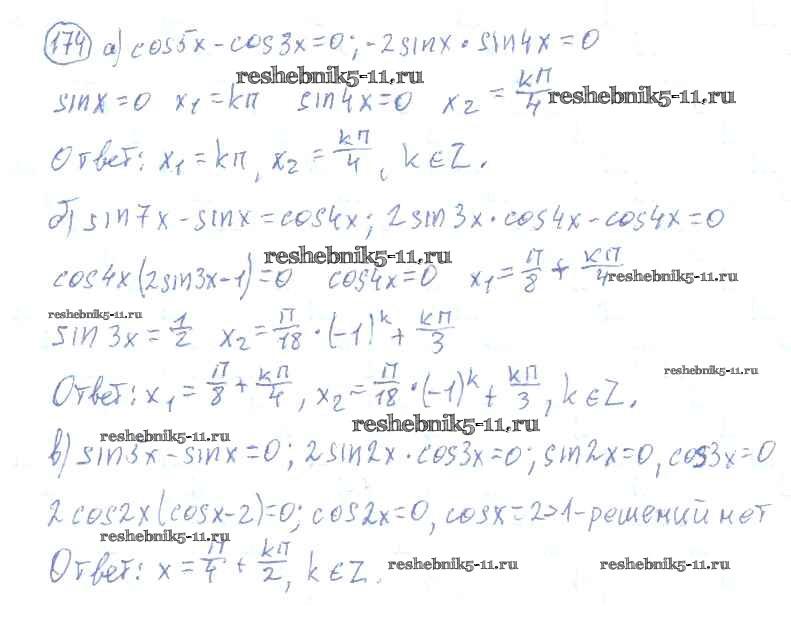 174 а) cos5x - cos3x = 0; -2sinx · sin4x = 0
reshebnik5-11.ru
sinx = 0 x₁ = kπ sin4x = 0 x₂ = kπ/4 reshebnik5-11.ru
Ответ: x₁ = kπ, x₂ = kπ/4, k ∈ Z.
б) sin7x - sinx = cos4x; 2sin3x · cos4x - cos4x = 0
reshebnik5-11.ru
cos4x(2sin3x-1) = 0 cos4x = 0 x₁ = π/8 + kπ/4 reshebnik5-11.ru
reshebnik5-11.ru
sin3x = 1/2 x₂ = π/18 · (-1)ᵏ + kπ/3
reshebnik5-11.ru
Ответ: x₁ = π/8 + kπ/4, x₂ = π/18 · (-1)ᵏ + kπ/3, k ∈ Z.
reshebnik5-11.ru
reshebnik5-11.ru
в) sin3x - sinx = 0; 2sin2x · cos3x = 0; sin2x = 0, cos3x = 0
2cos2x(cosx-2) = 0; cos2x = 0, cosx = 2>1 - решений нет
reshebnik5-11.ru
Ответ: x = π/4 + kπ/2, k ∈ Z. reshebnik5-11.ru reshebnik5-11.ru